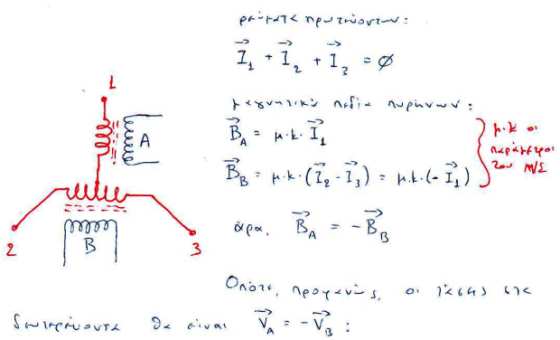 ρεύματα πρωτευόντων:
I⃗₁ + I⃗₂ + I⃗₃ = ∅
μαγνητικά πεδία πυρήνων:
B⃗_A = μ.κ. I⃗₁
B⃗_B = μ.κ.(I⃗₂ - I⃗₃) = μ.κ.(- I⃗₁)
μ.κ οι
παράμετροι
του Μ/Σ
άρα, B⃗_A = - B⃗_B
Οπότε, προφανώς, οι τάσεις στα
δευτερεύοντα θα είναι V⃗_A = - V⃗_B :
1
A
B
2
3